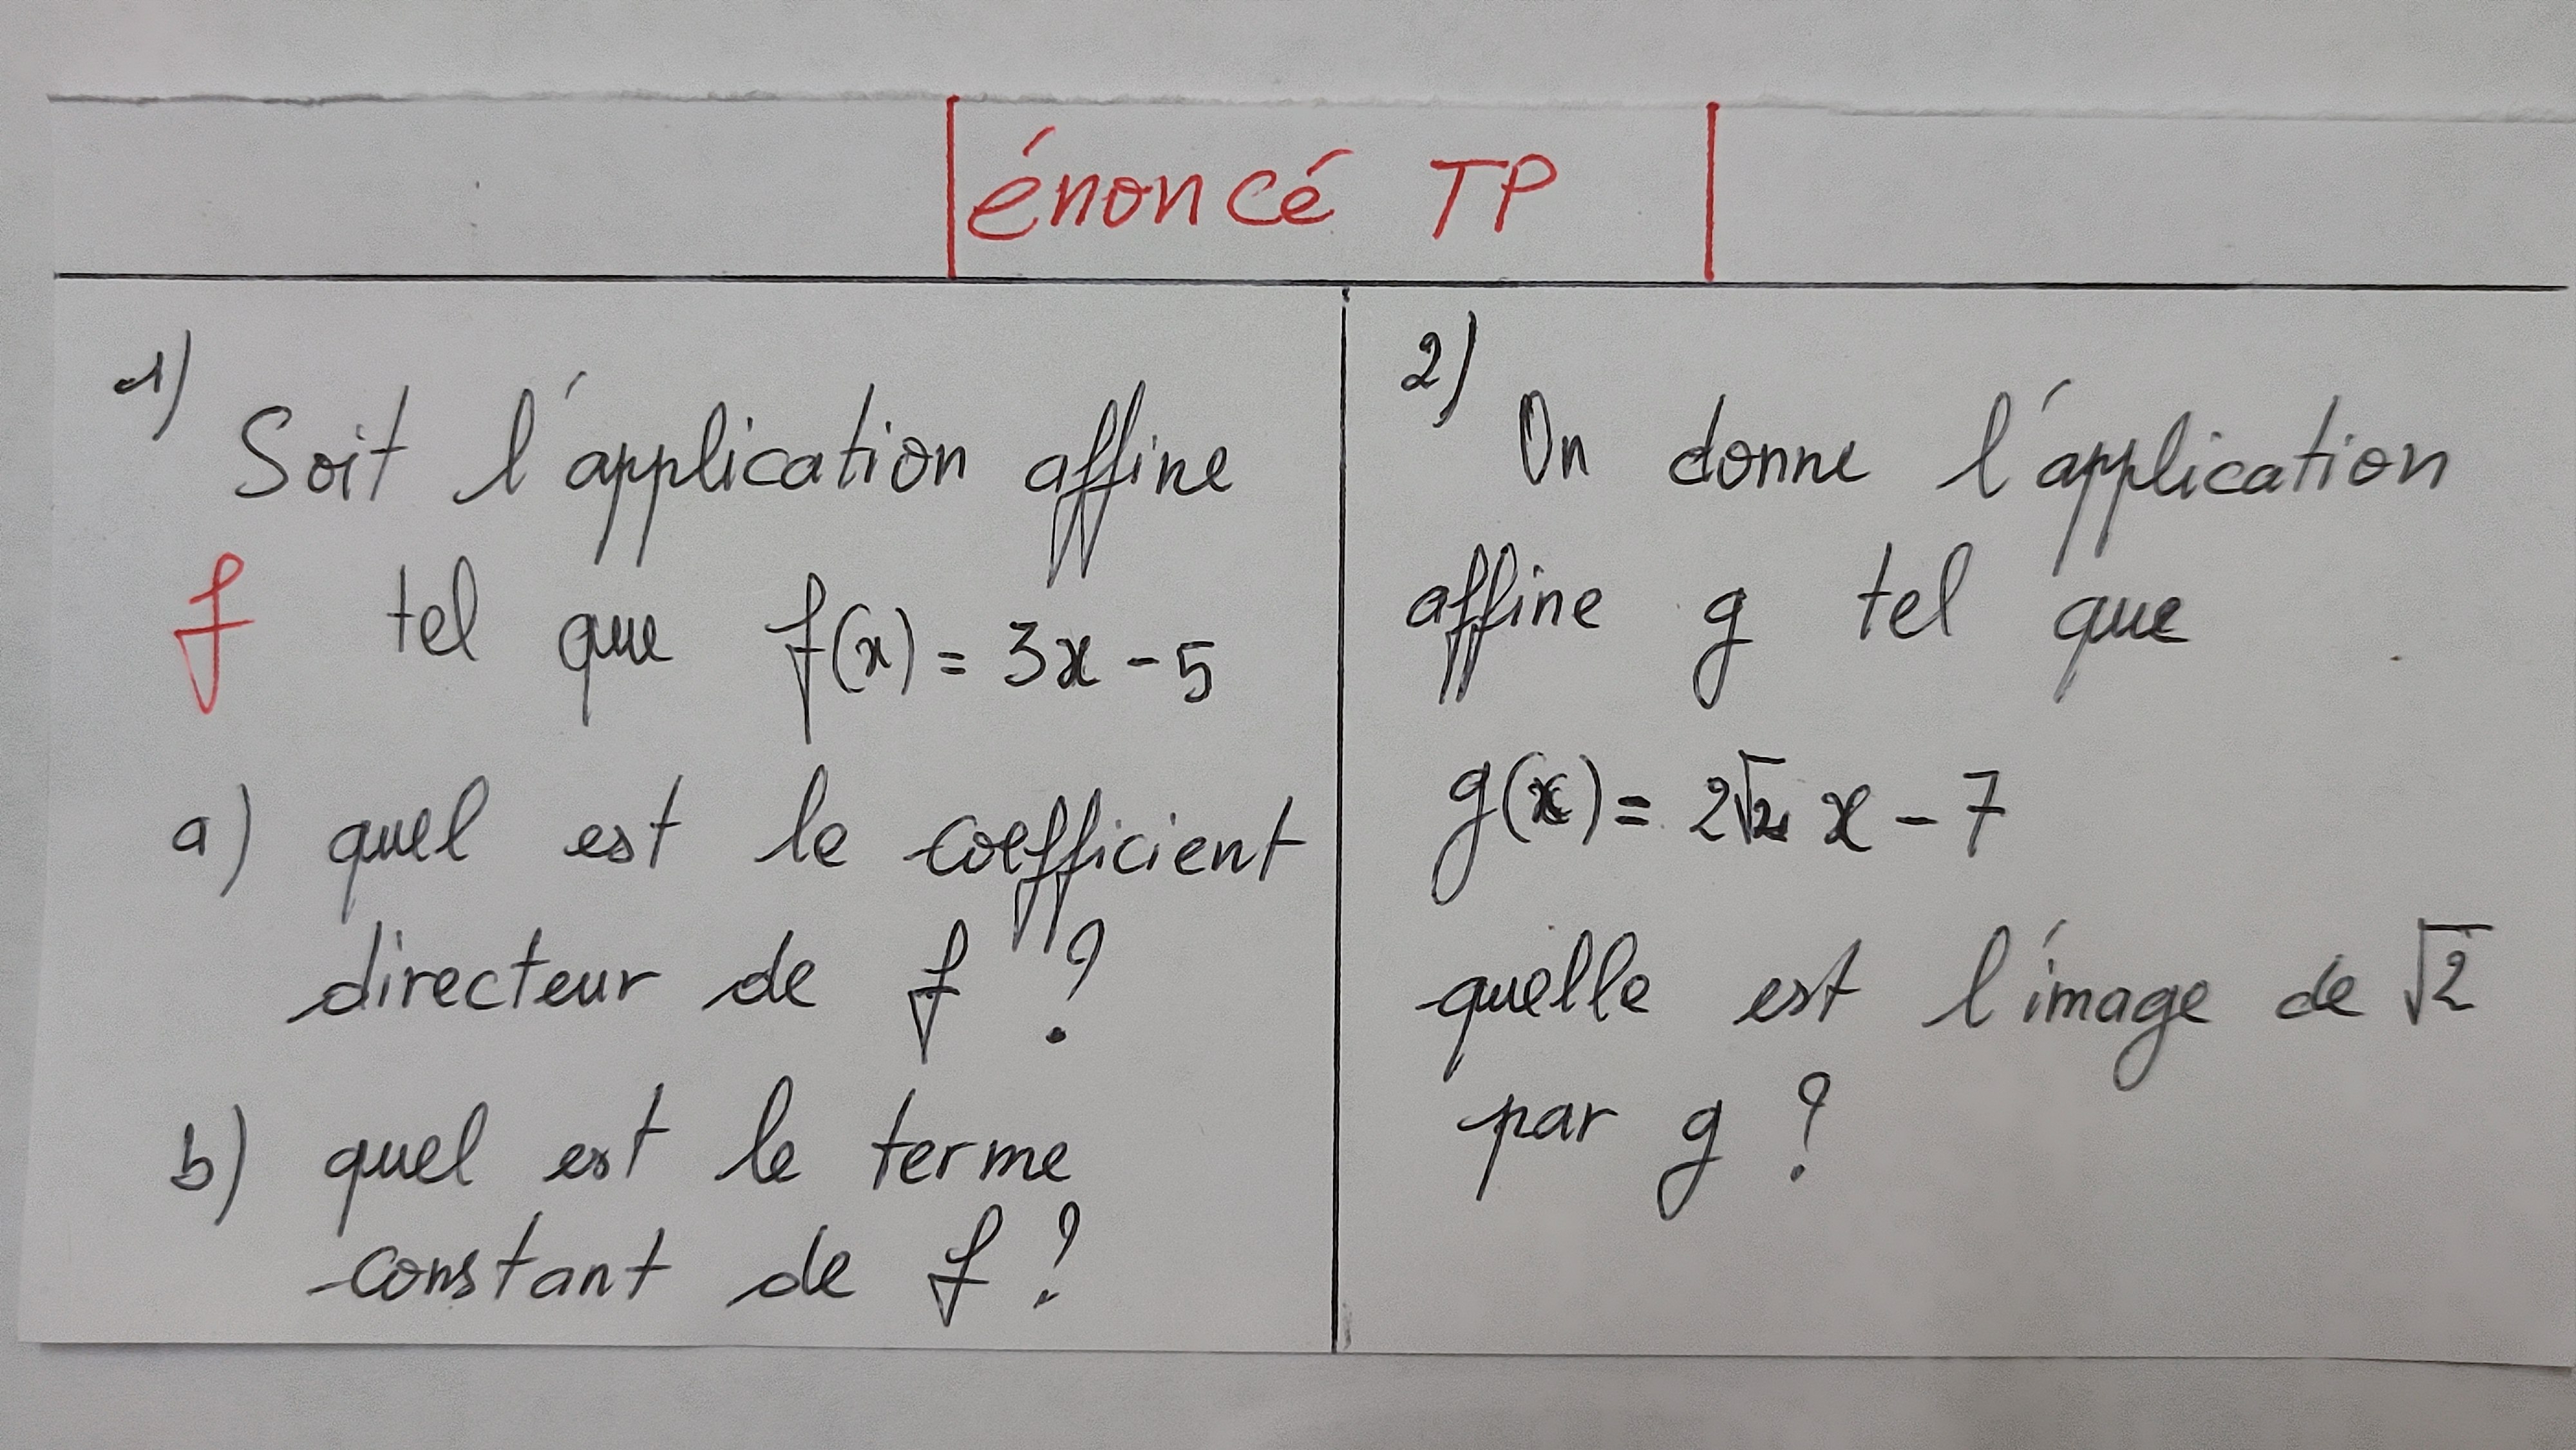 énoncé TP
1)
Soit l'application affine
f tel que f(x) = 3x - 5
a) quel est le coefficient
directeur de f ?
b) quel est le terme
constant de f ?
2)
On donne l'application
affine g tel que
g(x) = 2√2 x - 7
quelle est l'image de √2
par g ?